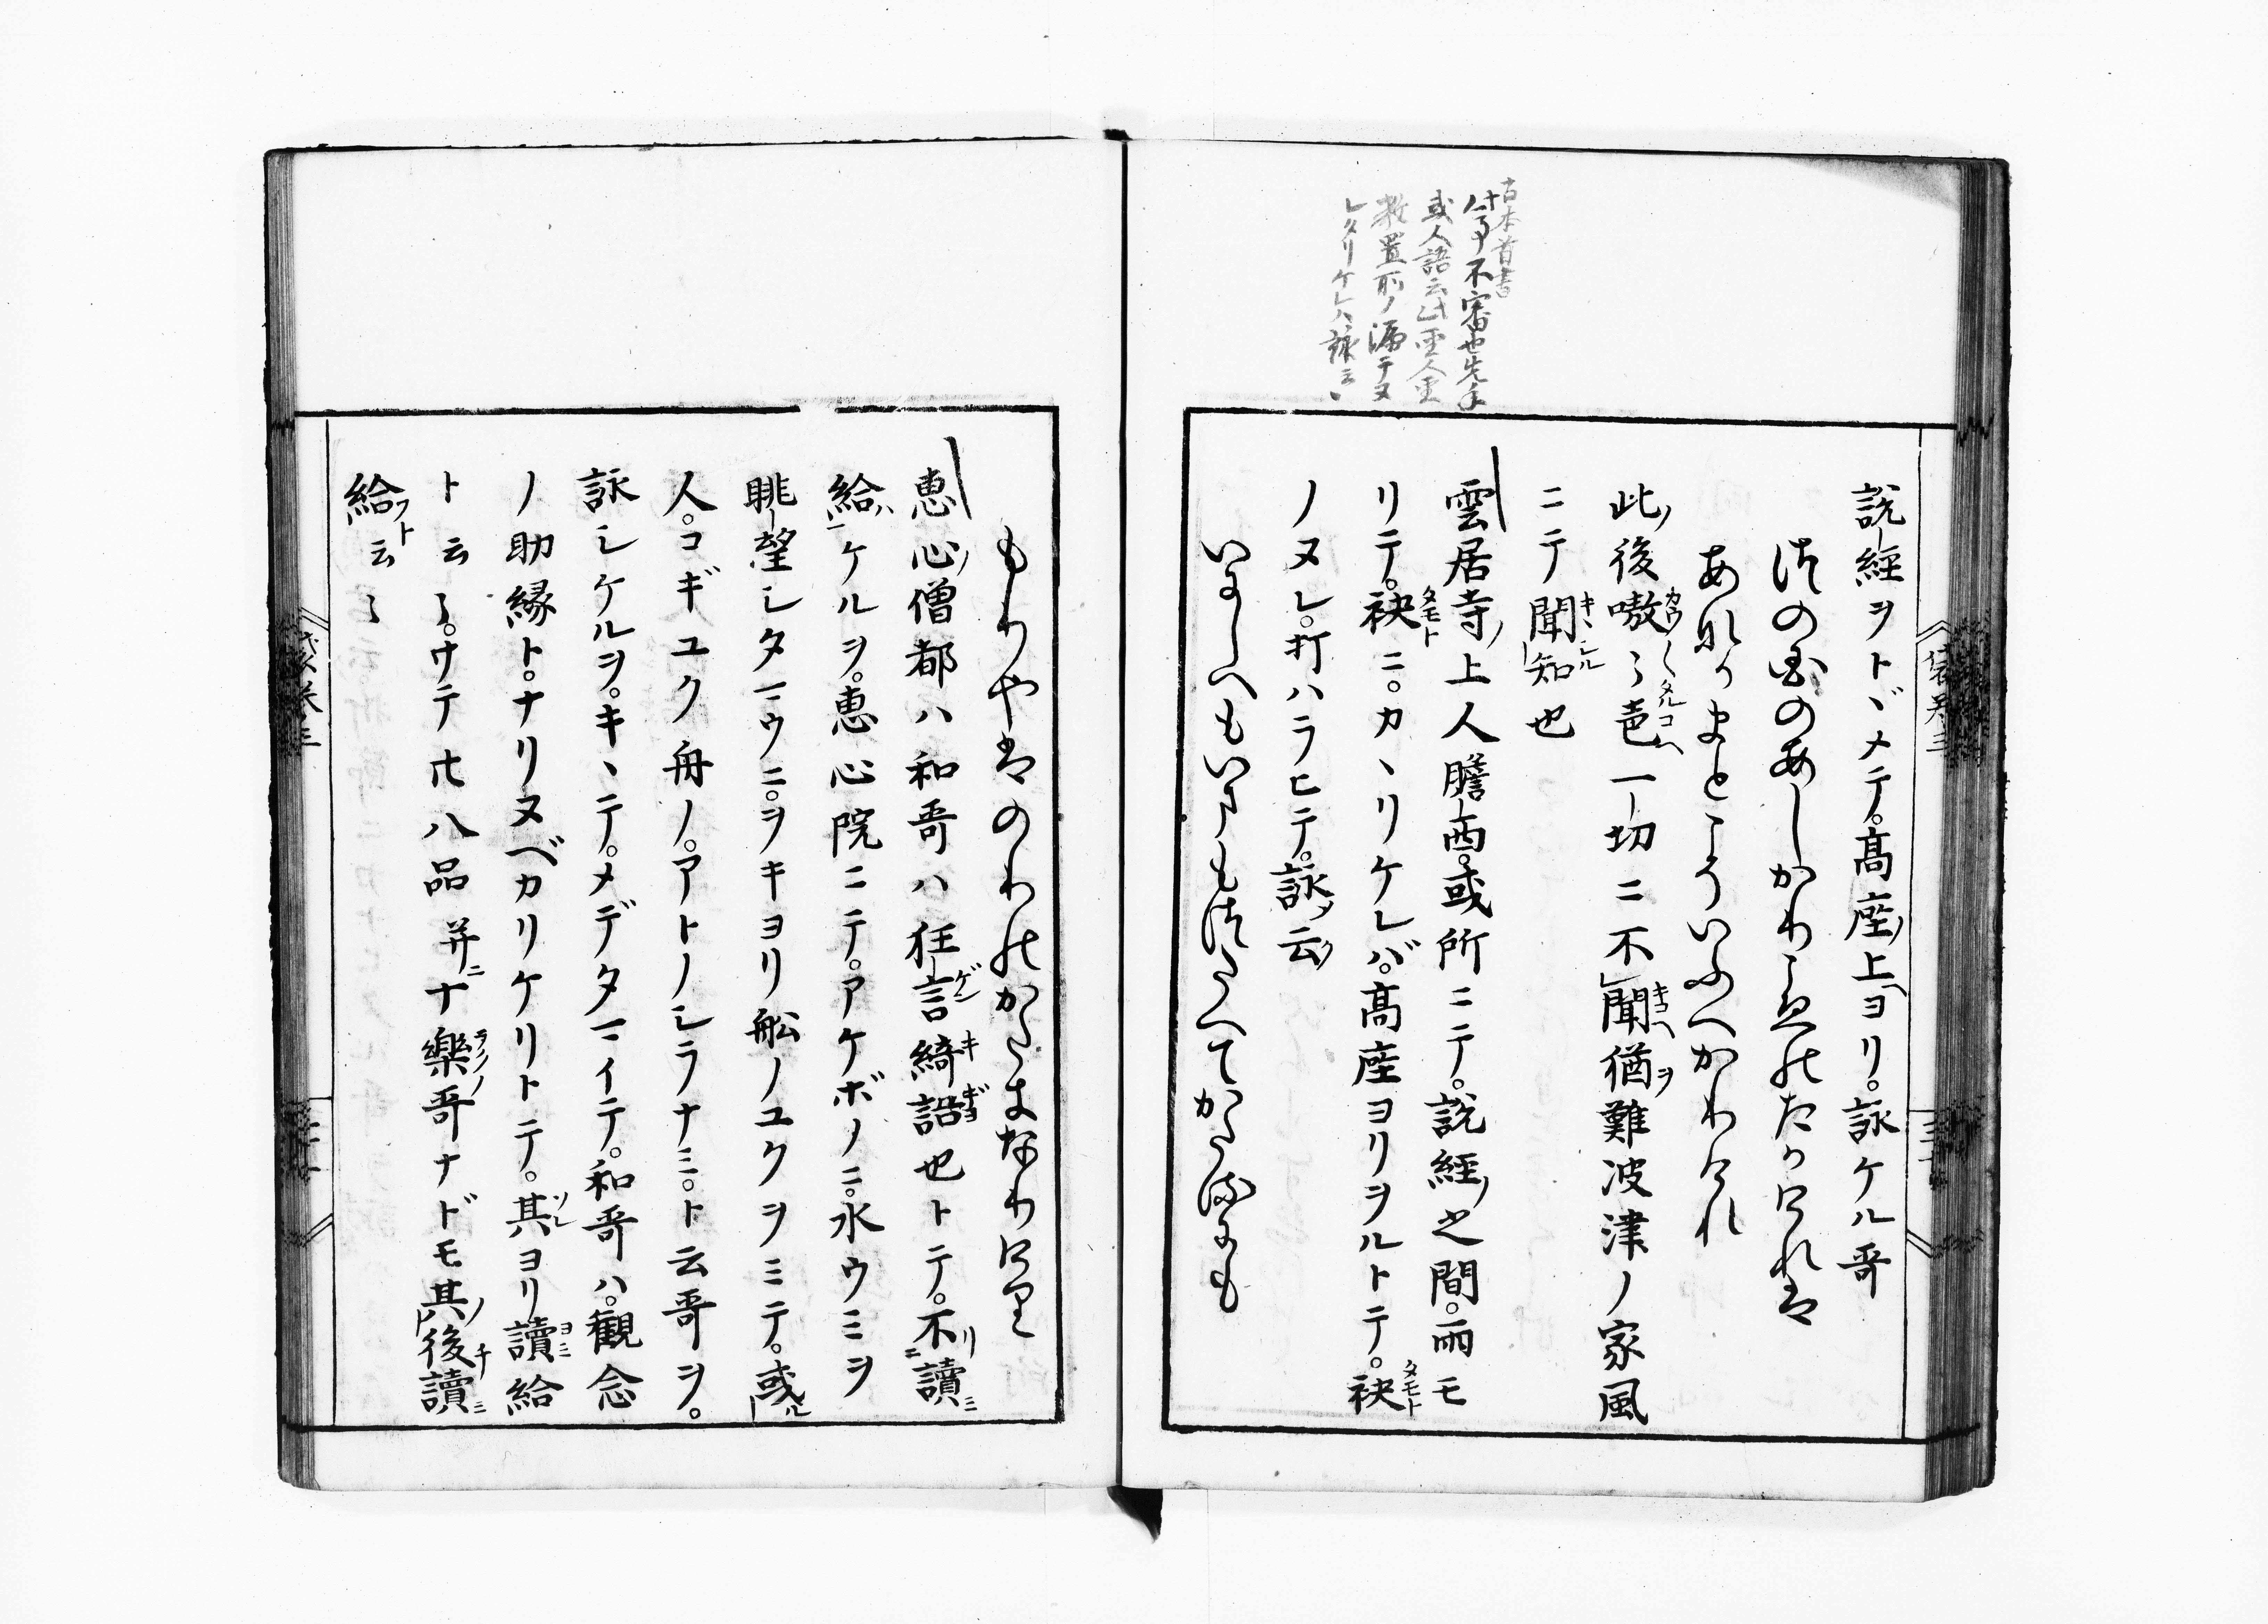 古本首書
或人語云此聖人聖
教置所ノ漏テヌ
レタリケレハ詠云々
説経ヲトヾメテ。高座ノ上ヨリ。詠ケル哥
津の国のあしかわらゑのたかけれは
あなかまとこそいふへかりけれ
此ノ後嗷々色一切ニ不聞猶難波津ノ家風
ニテ聞知也
雲居寺ノ上人瞻西。或所ニテ。説経ノ之間。雨モ
リテ。袂ニ。カヽリケレバ。高座ヨリヲルトテ。袂
ノヌレ。打ハラヒテ。詠ノ云ク
いにしへもいまもつたへてかたるにも
もりやはのりのかたきなりけり
恵心ノ僧都ハ和哥ハ狂言綺語也トテ。不讀
給ケルヲ。恵心院ニテ。アケボノニ。水ウミヲ
眺望シタマウニ。ヲキヨリ舩ノユクヲミテ。或
人。コギユク舟ノ。アトノシラナミ。ト云哥ヲ。
詠シケルヲ。キヽテ。メデタマイテ。和哥ハ。観念
ノ助縁ト。ナリヌベカリケリトテ。其ヨリ讀給
ト云々。サテ廿八品并ニ十樂哥ナドモ其後讀
給フト云々